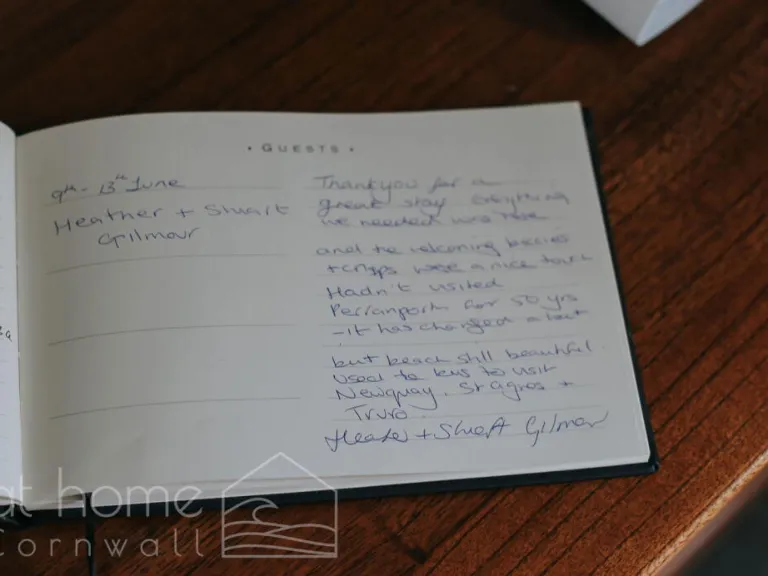 • GUESTS •
9th - 13th June
Heather + Stuart
Gilmour
Thankyou for a
great stay everything
we needed was here
and the welcoming beccies
+ crisps were a nice touch
Hadn't visited
Perranporth for 50 yrs
- it has changed a lot
but beach still beautiful
used the bus to visit
Newquay, St Agnes +
Truro.
Heather + Stuart Gilmour
at home
Cornwall